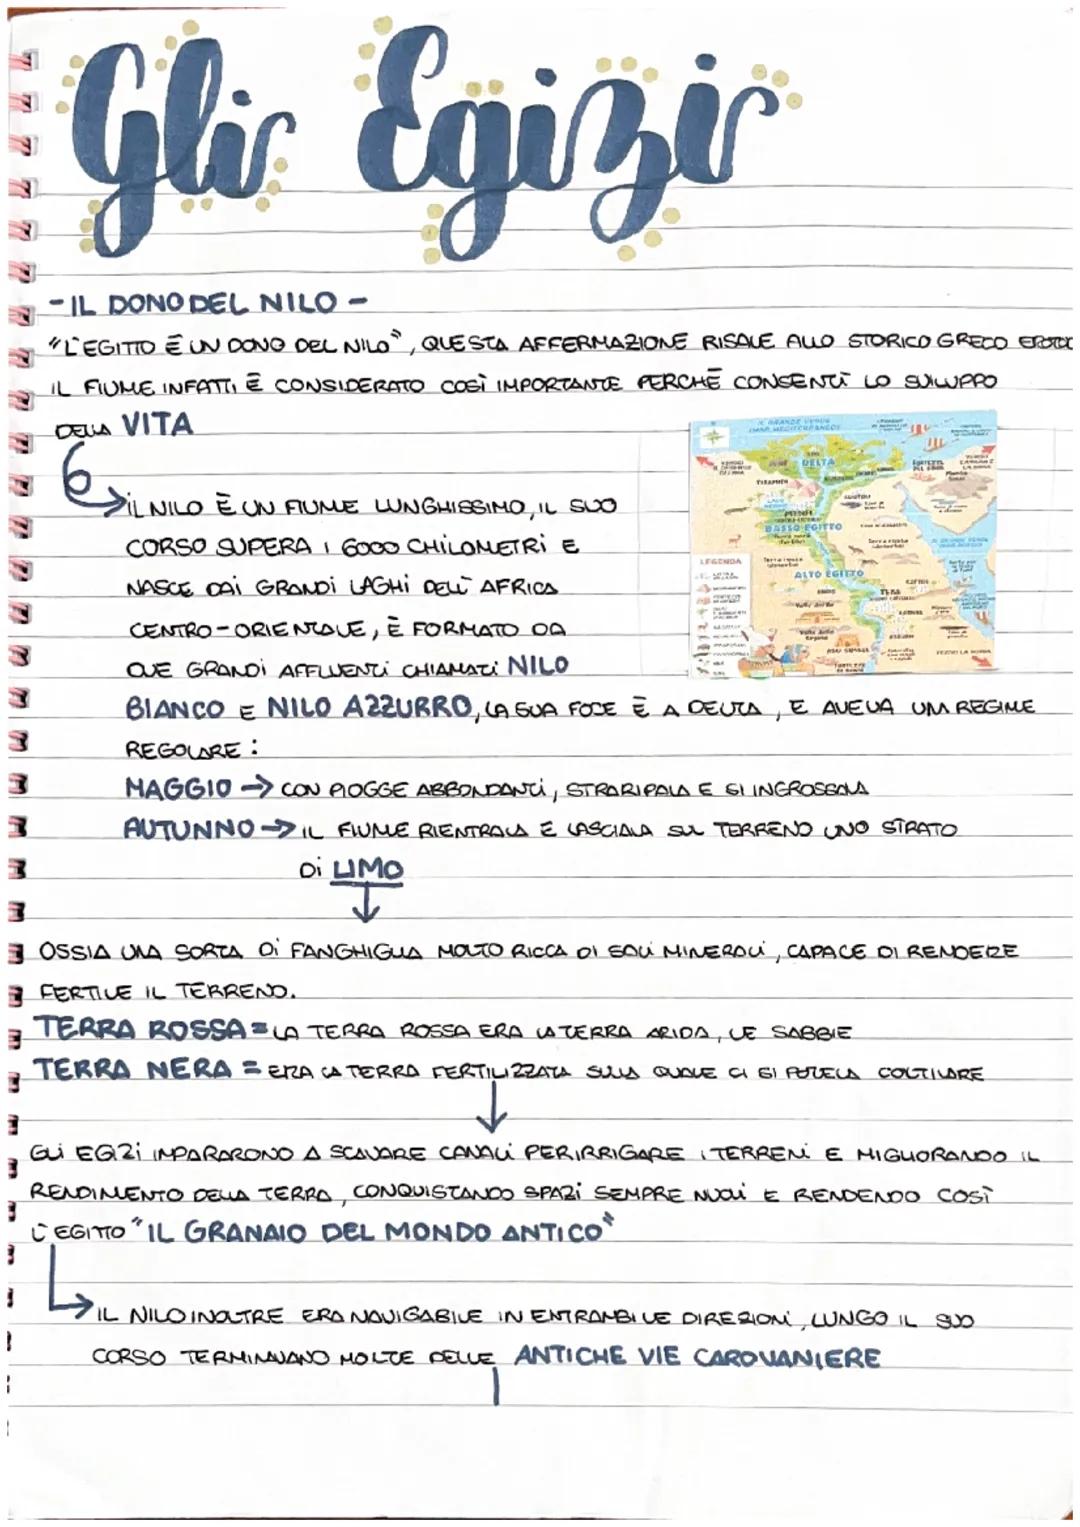 Gli Egizi
- IL DONO DEL NILO -
"L'EGITTO È UN DONO DEL NILO", QUESTA AFFERMAZIONE RISALE ALLO STORICO GRECO
IL FIUME INFATTI È CONSIDERATO COSÌ IMPORTANTE PERCHÉ CONSENTÌ LO SVILUPPO
DELLA VITA
IL NILO È UN FIUME LUNGHISSIMO, IL SUO
CORSO SUPERA I 6000 CHILOMETRI E
NASCE DAI GRANDI LAGHI DELL'AFRICA
CENTRO-ORIENTALE, È FORMATO DA
DUE GRANDI AFFLUENTI CHIAMATI NILO
BIANCO E NILO AZZURRO, LA SUA FOCE È A DELTA, E AVEVA UM REGIME
REGOLARE:
MAGGIO → CON PIOGGE ABBONDANTI, STRARIPAVA E SI INGROSSAVA
AUTUNNO → IL FIUME RIENTRAVA E LASCIAVA SUL TERRENO UNO STRATO
DI LIMO
OSSIA UNA SORTA DI FANGHIGLIA MOLTO RICCA DI SALI MINERALI, CAPACE DI RENDERE
FERTILE IL TERRENO.
TERRA ROSSA = LA TERRA ROSSA ERA LA TERRA ARIDA, LE SABBIE
TERRA NERA = ERA LA TERRA FERTILIZZATA SULLA QUALE CI SI POTEVA COLTIVARE
GLI EGIZI IMPARARONO A SCAVARE CANALI PER IRRIGARE I TERRENI E MIGLIORANDO IL
RENDIMENTO DELLA TERRA, CONQUISTANDO SPAZI SEMPRE NUOVI E RENDENDO COSÌ
L'EGITTO "IL GRANAIO DEL MONDO ANTICO"
IL NILO INOLTRE ERA NAVIGABILE IN ENTRAMBI LE DIREZIONI, LUNGO IL SUO
CORSO TERMINAVANO MOLTE DELLE ANTICHE VIE CAROVANIERE
IL GRANDE VERDE
(MAR MEDITERRANEO)
DELTA
BASSO EGITTO
ALTO EGITTO
LEGENDA